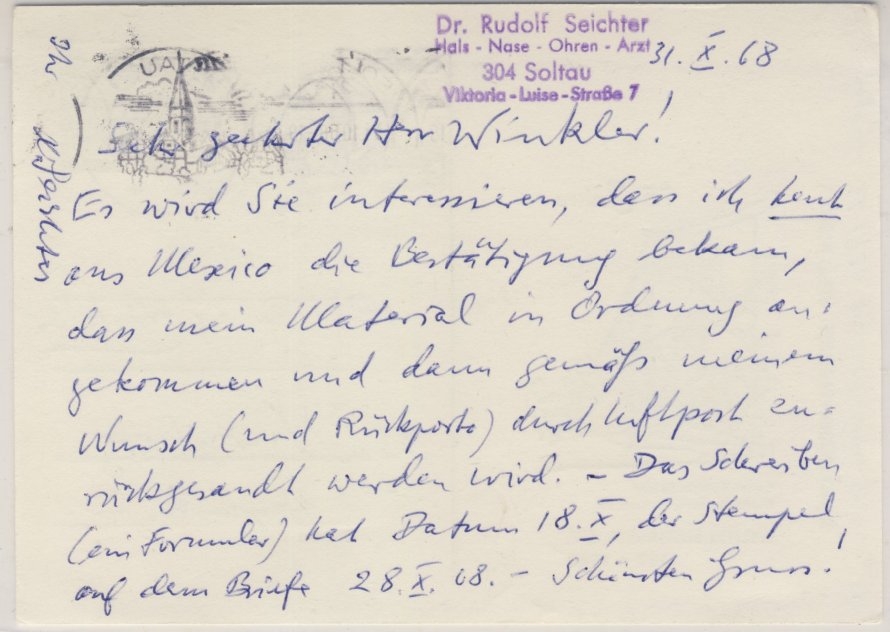 Dr. Rudolf Seichter
Hals - Nase - Ohren - Arzt
304 Soltau
Viktoria - Luise - Straße 7
31. X. 68
Sehr geehrter Herr Winkler!
Es wird Sie interessieren, dass ich heut
aus Mexico die Bestätigung bekam,
dass mein Material in Ordnung an-
gekommen und dann gemäß meinem
Wunsch (und Rückporto) durch Luftpost zu-
rückgesandt werden wird. – Das Schreiben
(ein Formular) hat Datum 18. X., der Stempel
auf dem Briefe 28. X. 68. – Schönsten Gruss!
Ihr R. Seichter